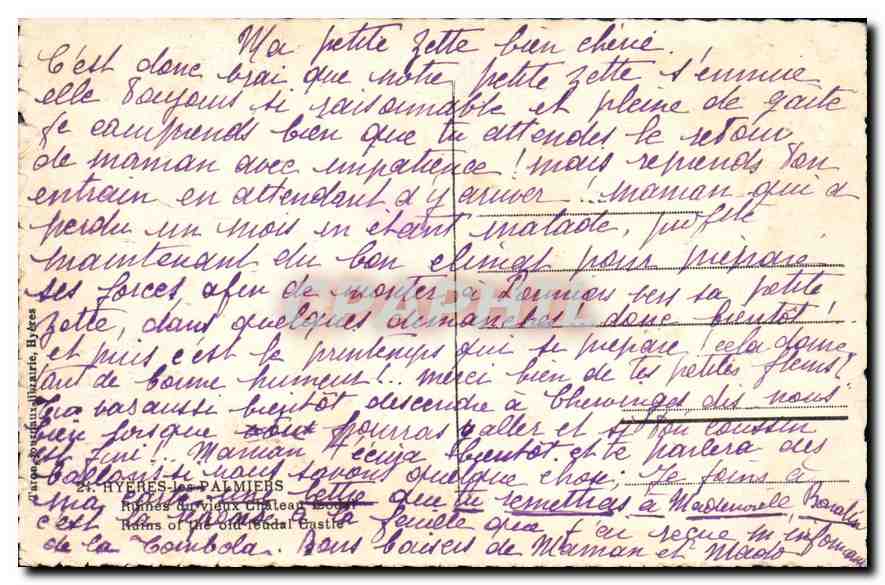 Ma petite Zette bien chérie.
C'est donc vrai que notre petite Zette s'ennuie
elle toujours si raisonnable et pleine de gaité
Je comprends bien que tu attendes le retour
de maman avec impatience ! mais reprends ton
entrain en attendant d'y arriver !. maman qui a
perdu un mois en étant malade, profite
maintenant du bon climat pour
ses forces afin de monter à vers sa petite
Zette, dans quelques semaines donc bientôt !
et puis c'est le printemps qui se prépare ! cela donne
tant de bonne humeur !.. merci bien de tes petites fleurs !
Tu vas aussi bientôt descendre à dis nous
bien lorsque pourras y aller et si ton coussin
est fini !.. Maman t'écrira bientôt et te parlera des
ballons si nous savons quelque chose, Je joins à
ma carte une lettre que tu remettras à Mademoiselle
c'est la feuille que j'ai reçue m'informant
de la Tombola. Bons baisers de Maman et Mado
21. HYÈRES-les-PALMIERS
Ruines du vieux Château féodal
Ruins of the old feudal Castle
librairie, Hyères